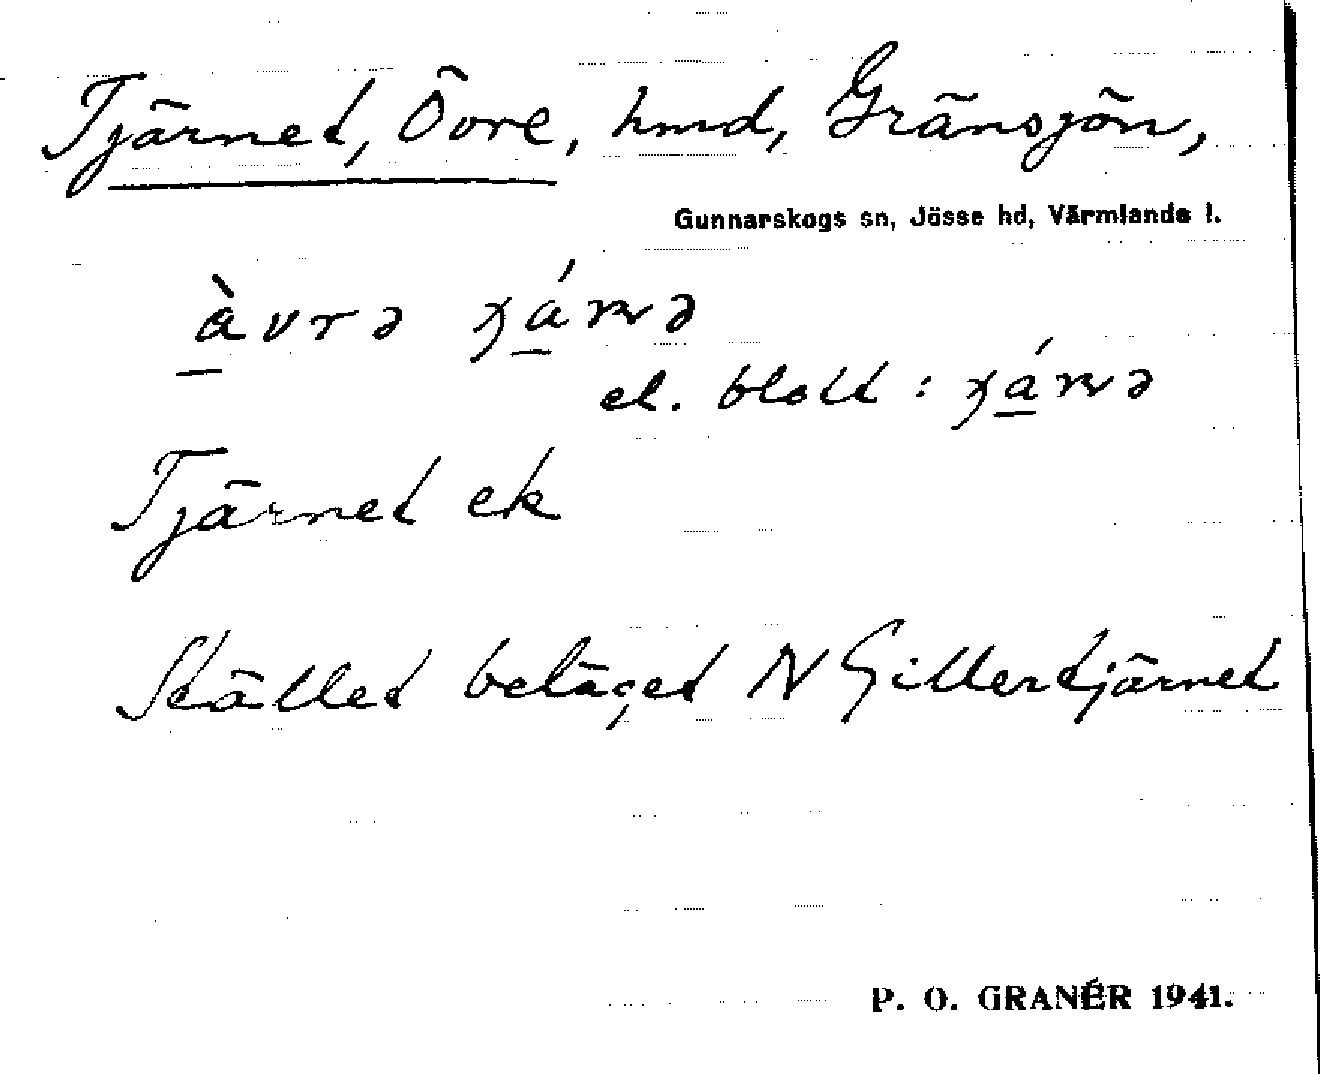 Tjärnet, Övre, hmd, Gränsjön,
Gunnarskogs sn, Jösse hd, Värmlands l.
àvrə
el. blott :
Tjärnet ek
Stället beläget N Gillertjärnet
P. O. GRANÉR 1941.